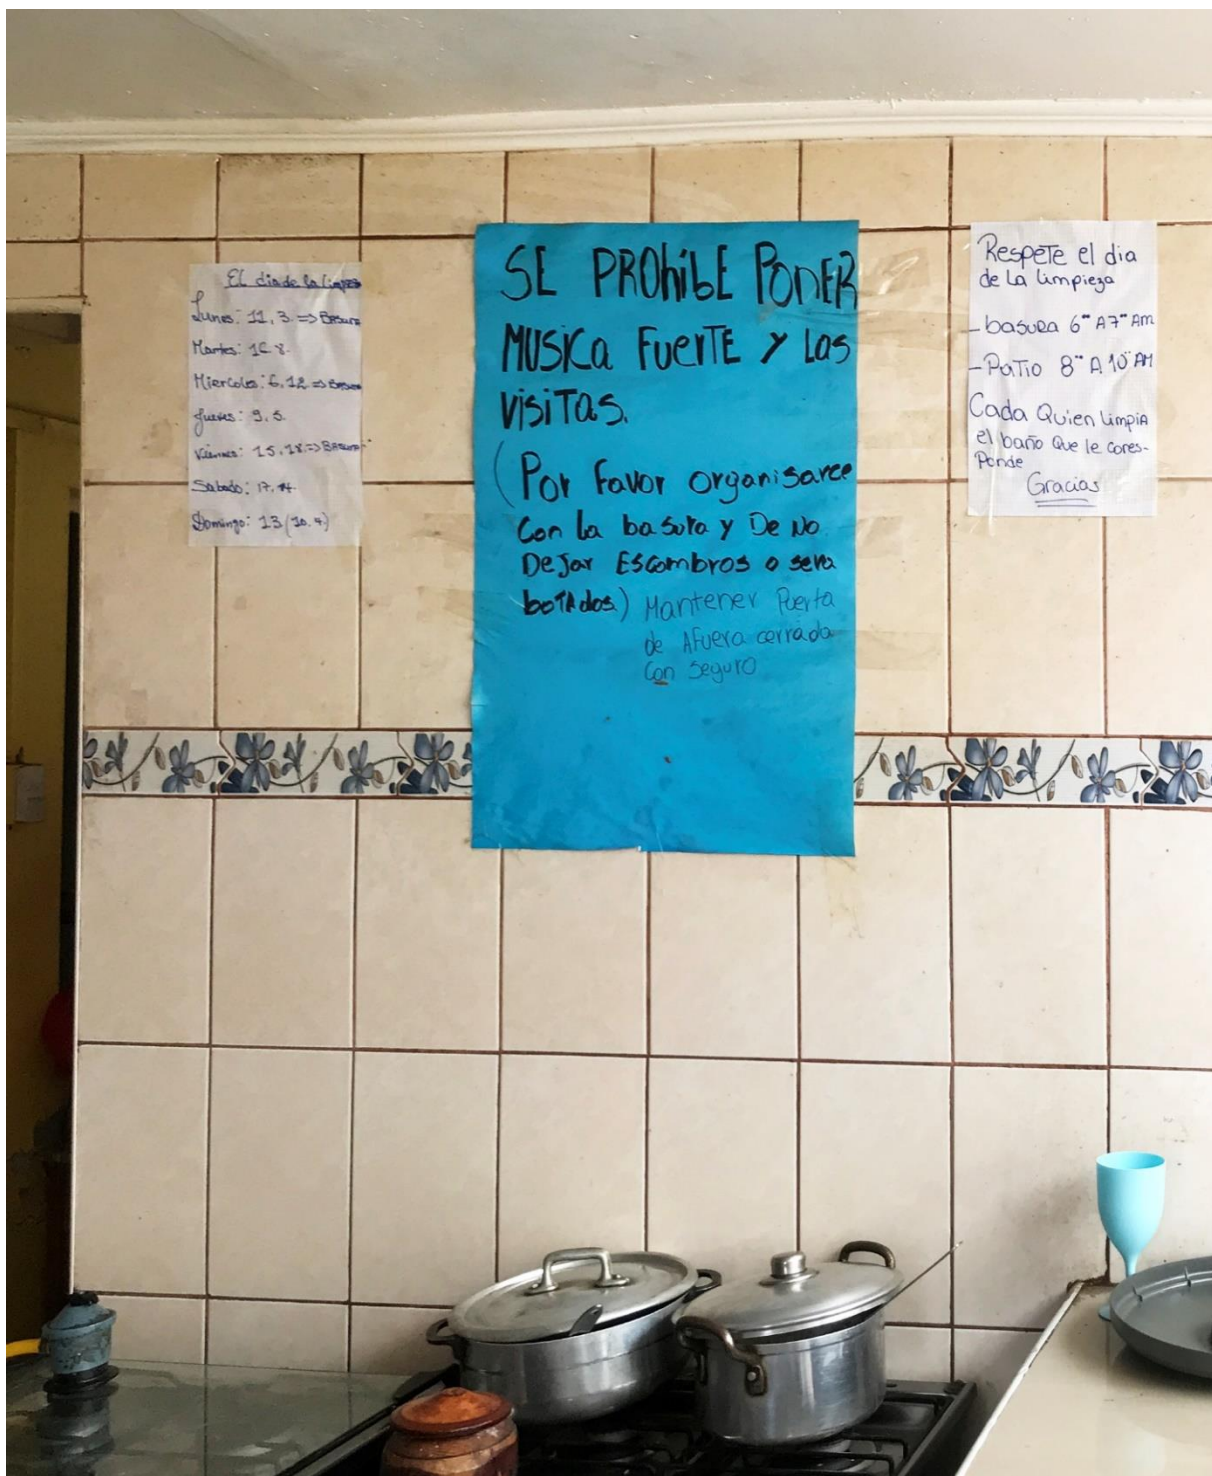 EL dia de la Limpieza
Lunes: 11, 3. => Basura
Martes: 16. 8.
Miercoles: 6, 12 => Basura
Jueves: 9, 5.
Viernes: 15, 18 => Basura
Sabado: 17, 14.
Domingo: 13 (10. 4)
SE PROhibE PONER
MUSICa FuerTE y Las
VisiTas.
(Por Favor organisarce
Con la basura y De No
DeJar Escombros o sera
boTAdos.) Mantener Puerta
de AFuera cerrada
Con Seguro
Respete el dia
de La Limpieza
- basura 6 A 7 Am
- PaTio 8 A 10 AM
Cada Quien Limpia
el baño Que le cores-
Ponde
Gracias